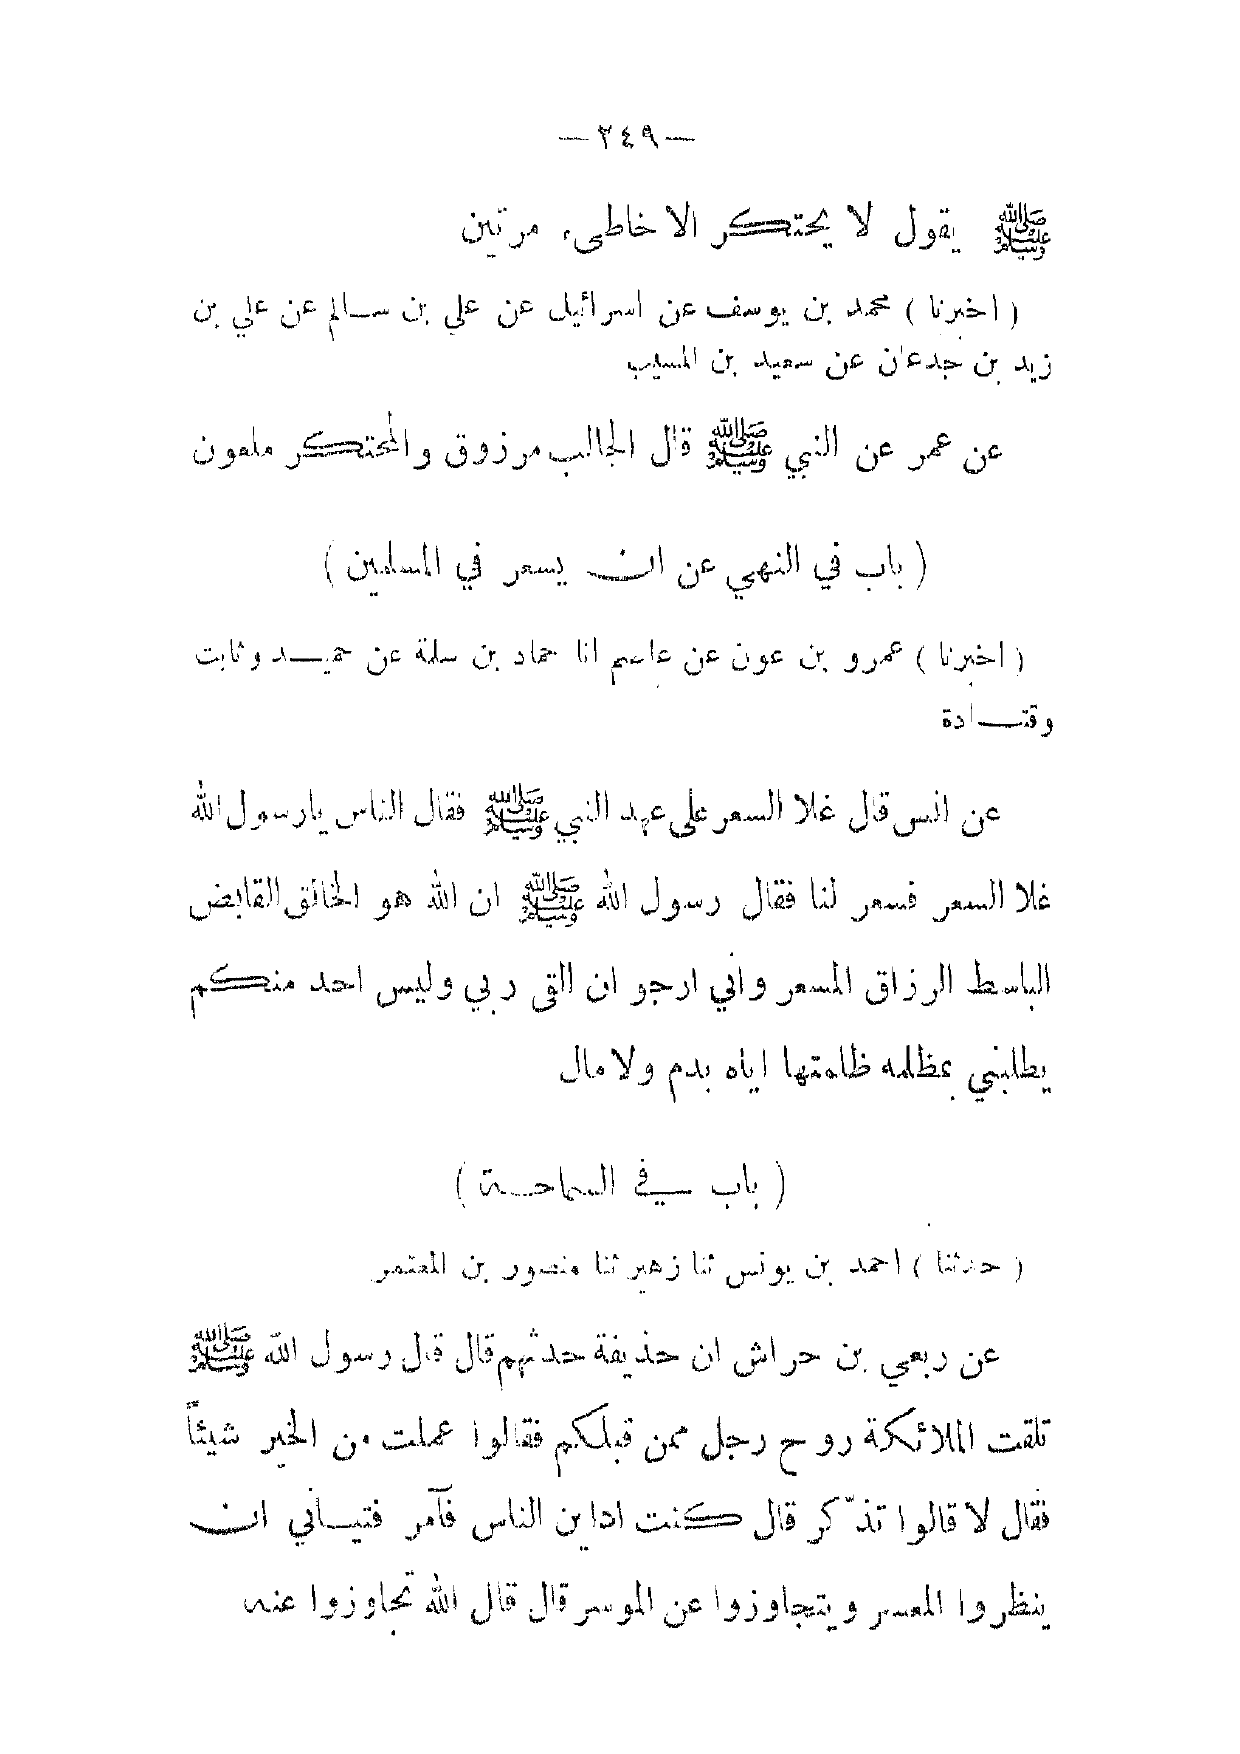 — ٢٤٩ —
ﷺ يقول لا يحتكر الا خاطىء مرتين
( اخبرنا ) محمد بن يوسف عن اسرائيل عن علي بن سالم عن علي بن
زيد بن جدعان عن سعيد بن المسيب
عن عمر عن النبي ﷺ قال الجالب مرزوق والمحتكر ملعون
( باب في النهي عن ان يسعر في المسلمين )
( اخبرنا ) عمرو بن عون عن عاصم انا حماد بن سلمة عن حميد وثابت
وقتادة
عن انس قال غلا السعر على عهد النبي ﷺ فقال الناس يارسول الله
غلا السعر فسعر لنا فقال رسول الله ﷺ ان الله هو الخالق القابض
الباسط الرزاق المسعر واني ارجو ان القى ربي وليس احد منكم
يطلبني بمظلمه ظلمتها اياه بدم ولا مال
( باب في السماحة )
( حدثنا ) احمد بن يونس ثنا زهير ثنا منصور بن المعتمر
عن ربعي بن حراش ان حذيفة حدثهم قال قال رسول الله ﷺ
تلقت الملائكة روح رجل ممن قبلكم فقالوا عملت من الخير شيئاً
فقال لا قالوا تذكّر قال كنت اداين الناس فآمر فتياني ان
ينظروا المعسر ويتجاوزوا عن الموسر قال قال الله تجاوزوا عنه